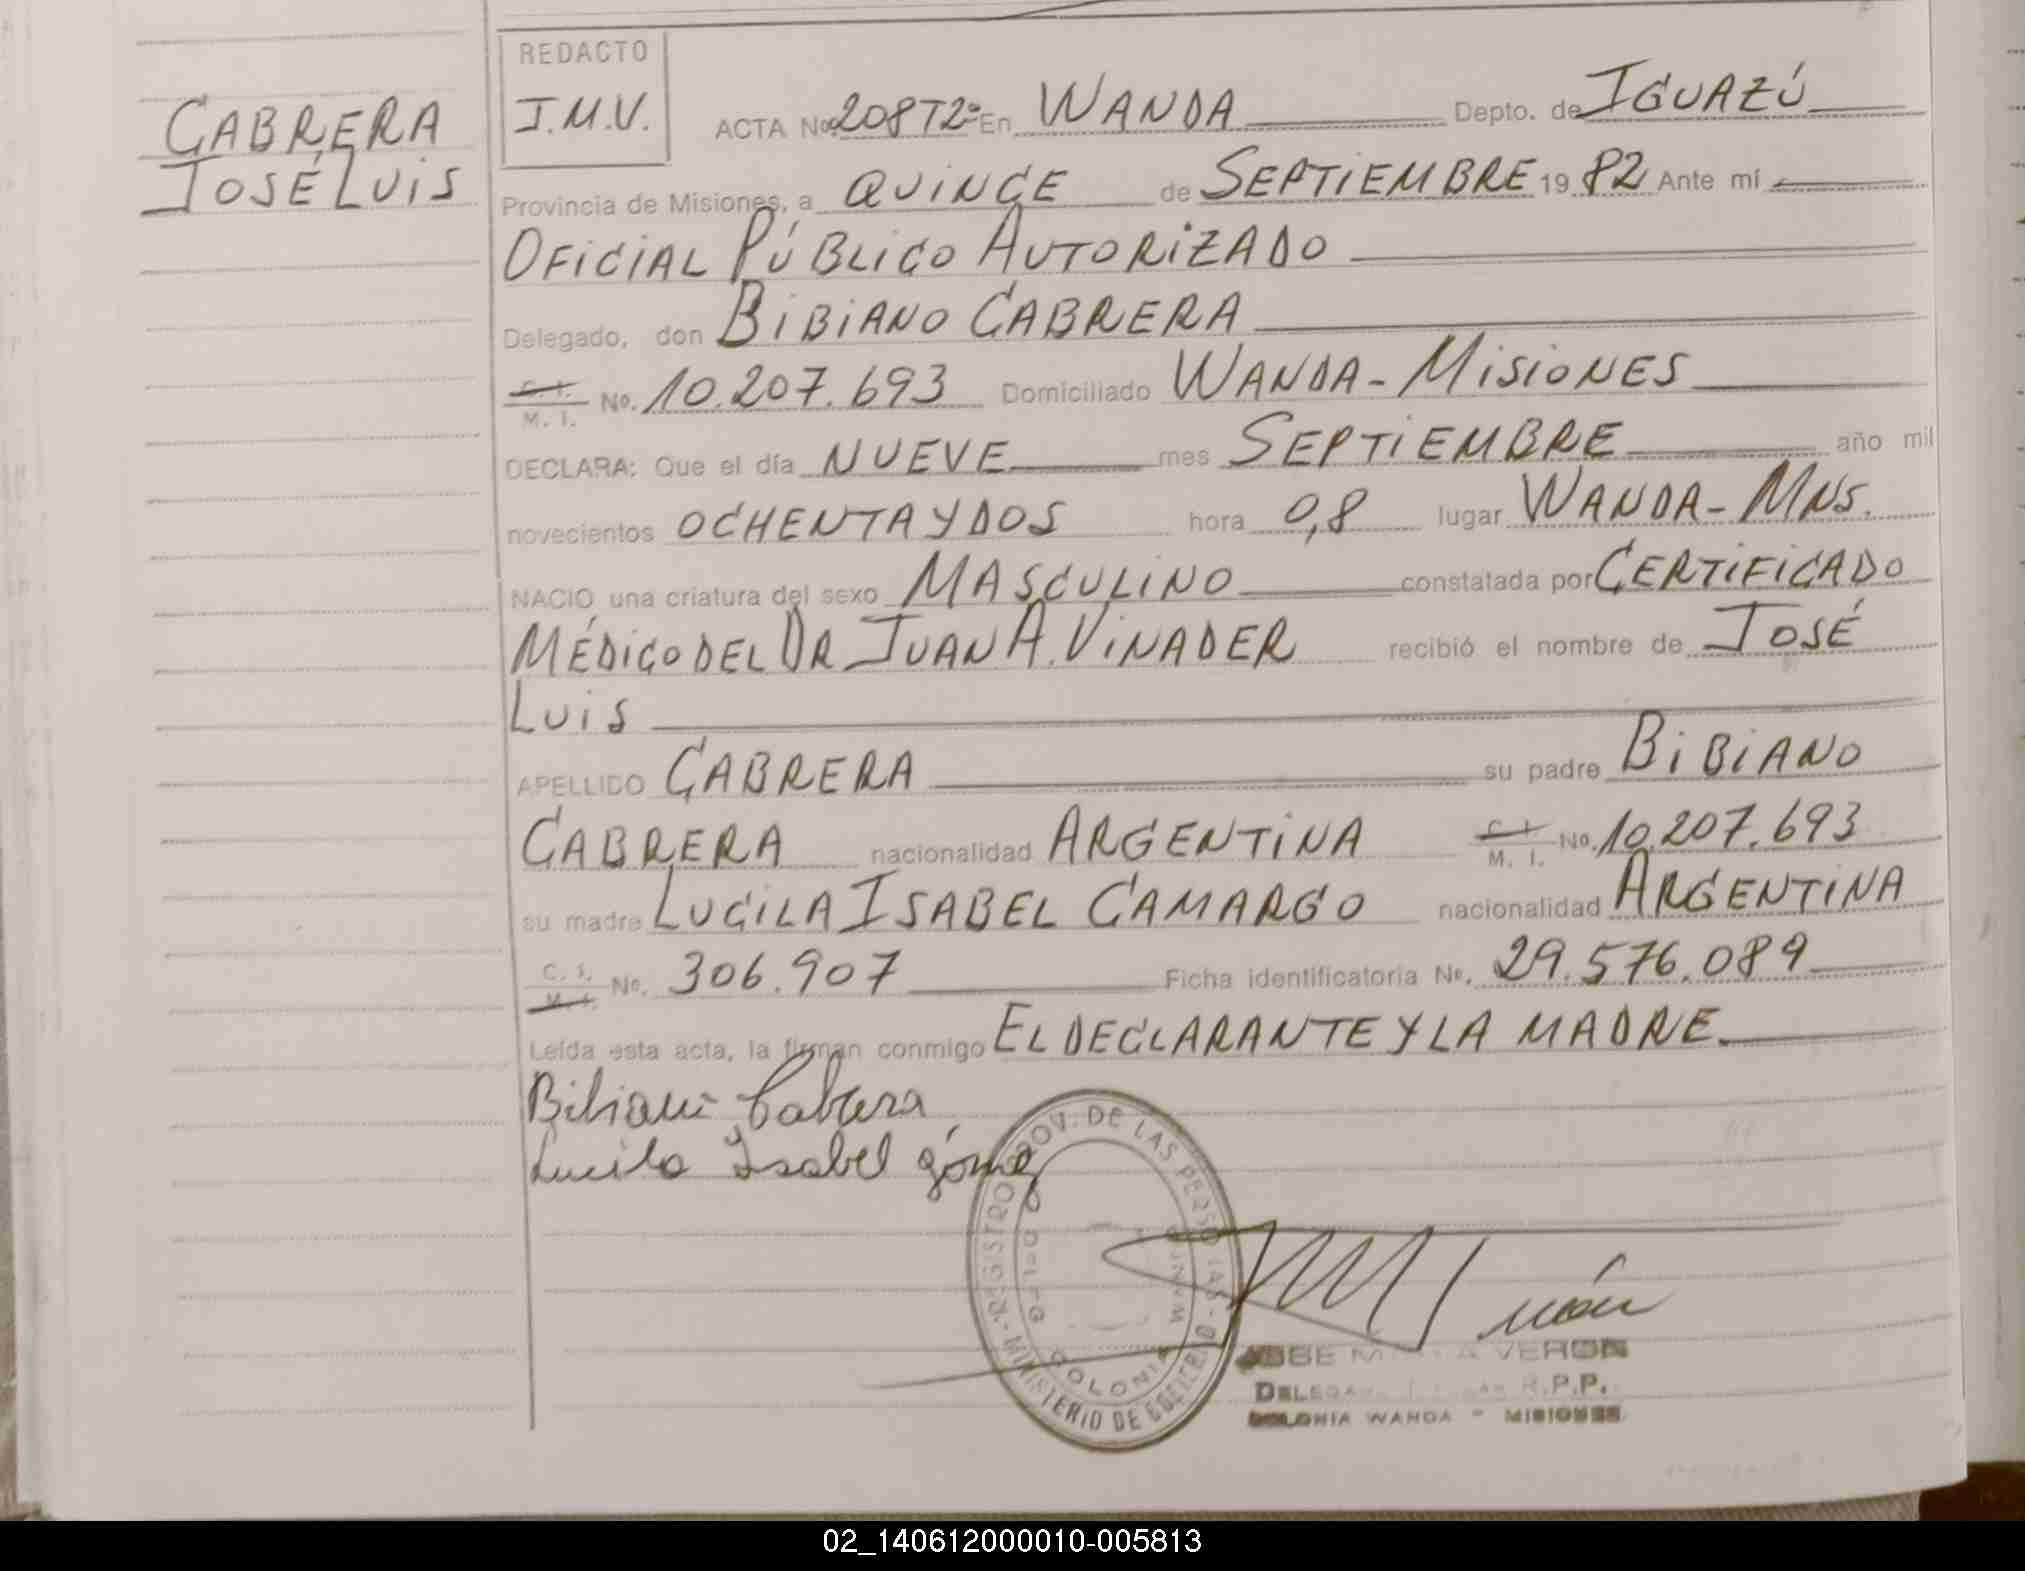 CABRERA
JOSÉ LUIS
REDACTO
J.M.V.
ACTA No. 208 T2º En WANDA Depto. de IGUAZÚ
Provincia de Misiones, a QUINCE de SEPTIEMBRE 1982 Ante mí
OFICIAL PÚBLICO AUTORIZADO
Delegado, don BIBIANO CABRERA
C. I. M. I. No. 10.207.693 Domiciliado WANDA - MISIONES
DECLARA: Que el día NUEVE mes SEPTIEMBRE año mil
novecientos OCHENTA Y DOS hora 0,8 lugar WANDA - MNS.
NACIO una criatura del sexo MASCULINO constatada por CERTIFICADO
MÉDICO DEL DR JUAN A. VINADER recibió el nombre de JOSÉ
LUIS
APELLIDO CABRERA su padre BIBIANO
CABRERA nacionalidad ARGENTINA C. I. M. I. No. 10.207.693
su madre LUCILA ISABEL CAMARGO nacionalidad ARGENTINA
C. I. M. I. No. 306.907 Ficha identificatoria No. 29.576.089
Leída esta acta, la firman conmigo EL DECLARANTE Y LA MADRE.
Bibiano Cabrera
Lucila Isabel Gómez
REGISTRO PROV. DE LAS PERSONAS - MINISTERIO DE GOBIERNO
COLONIA WANDA
VERON
R.P.P.
COLONIA WANDA - MISIONES
02_140612000010-005813